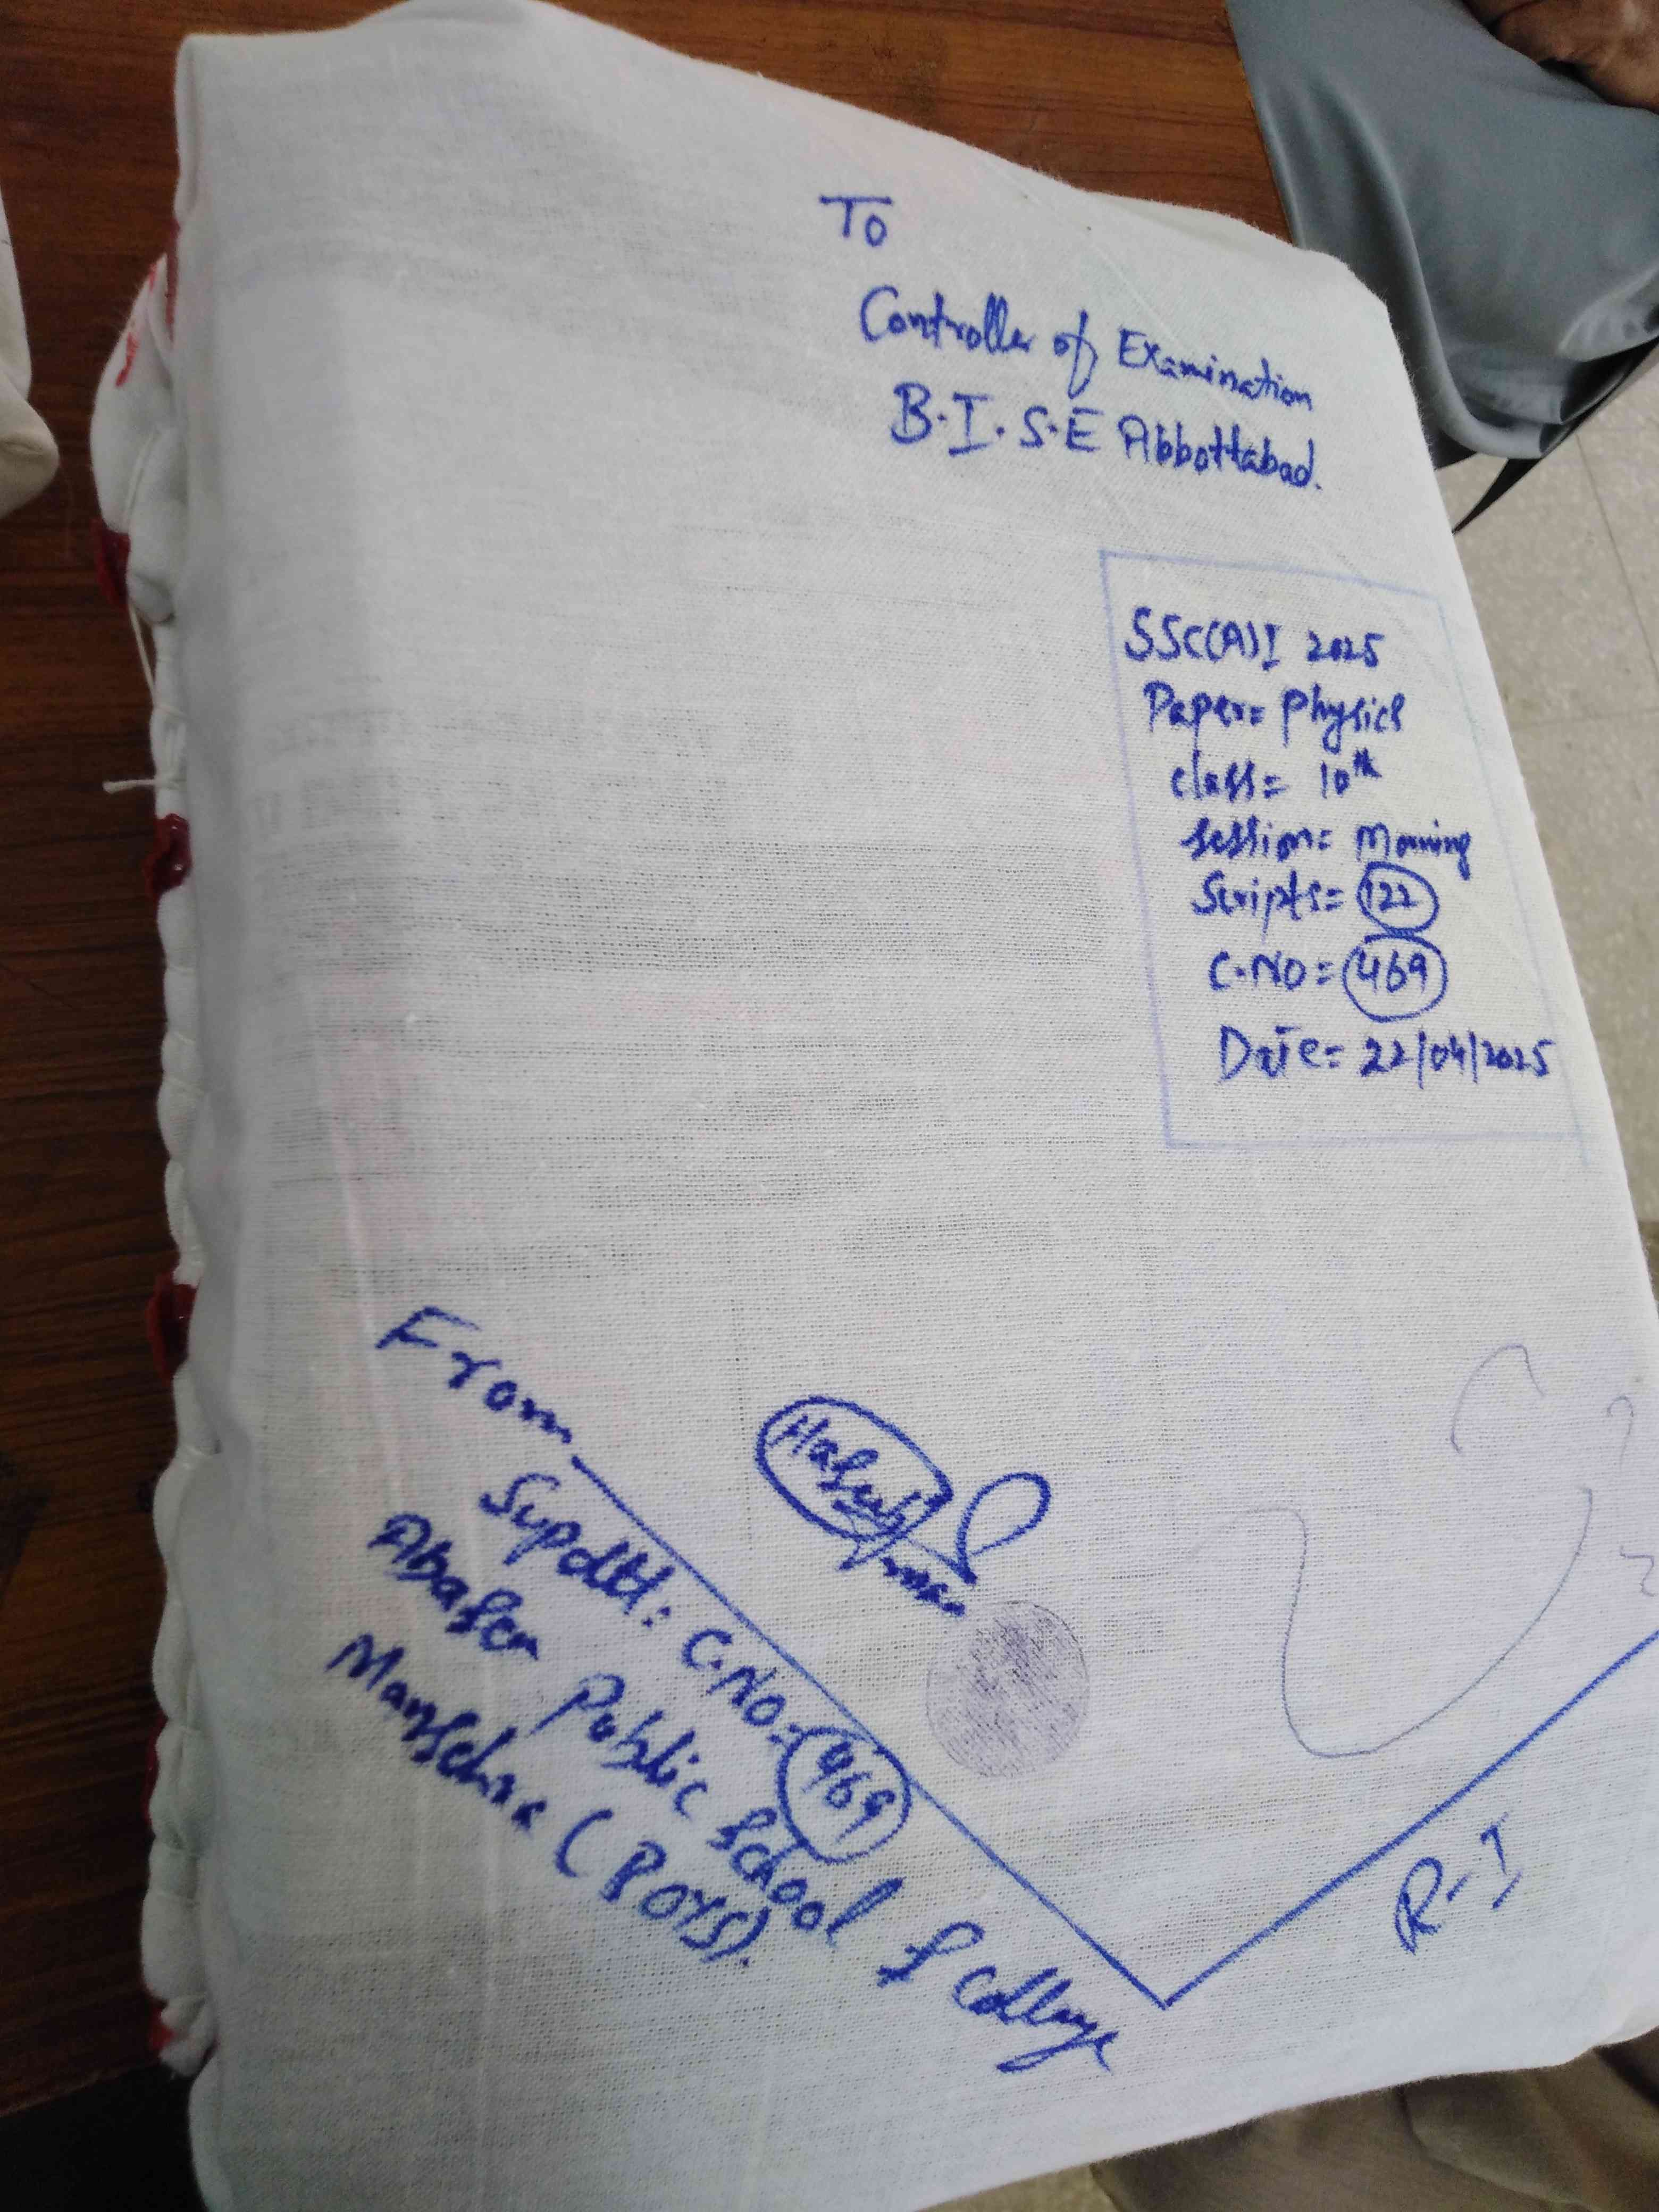 To
Controller of Examination
B.I.S.E Abbottabad.
SSC(A)I 2025
Paper= Physics
class= 10th
session= Morning
Scripts= 122
C.NO= 469
Date= 22/04/2025
From
Supdtt: C.NO= 469
Abasen Public School & College
Mansehra (BOYS).
R-I